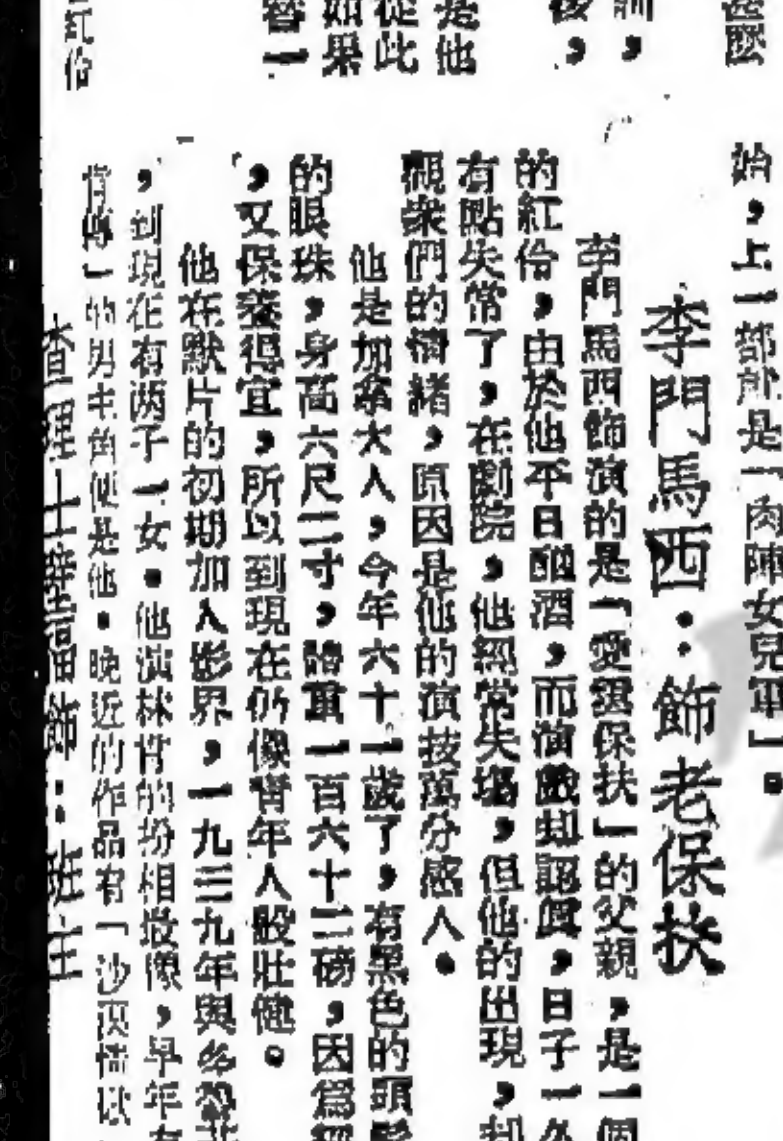 甚麼
訓，
後，
是他
從此
如果
替一
紅伶
始，上一部片是「肉陣女兒軍」。
李門馬西：飾老保扶
李門馬西飾演的是「愛溫保扶」的父親，是一個
的紅伶，由於他平日酗酒，而演戲却認眞，日子一久
有點失常了，在劇院，他經常失塲，但他的出現，却
觀衆們的情緒，原因是他的演技萬分感人。
他是加拿大人，今年六十一歲了，有黑色的頭髮
的眼珠，身高六尺二寸，體重一百六十二磅，因爲經
，又保養得宜，所以到現在仍像靑年人般壯健。
他在默片的初期加入影界，一九三九年與
，到現在有两子一女。他演林肯的扮相最像，早年有
肯傳」的男主角便是他。晚近的作品有「沙漠情歌
查理士 飾：班主